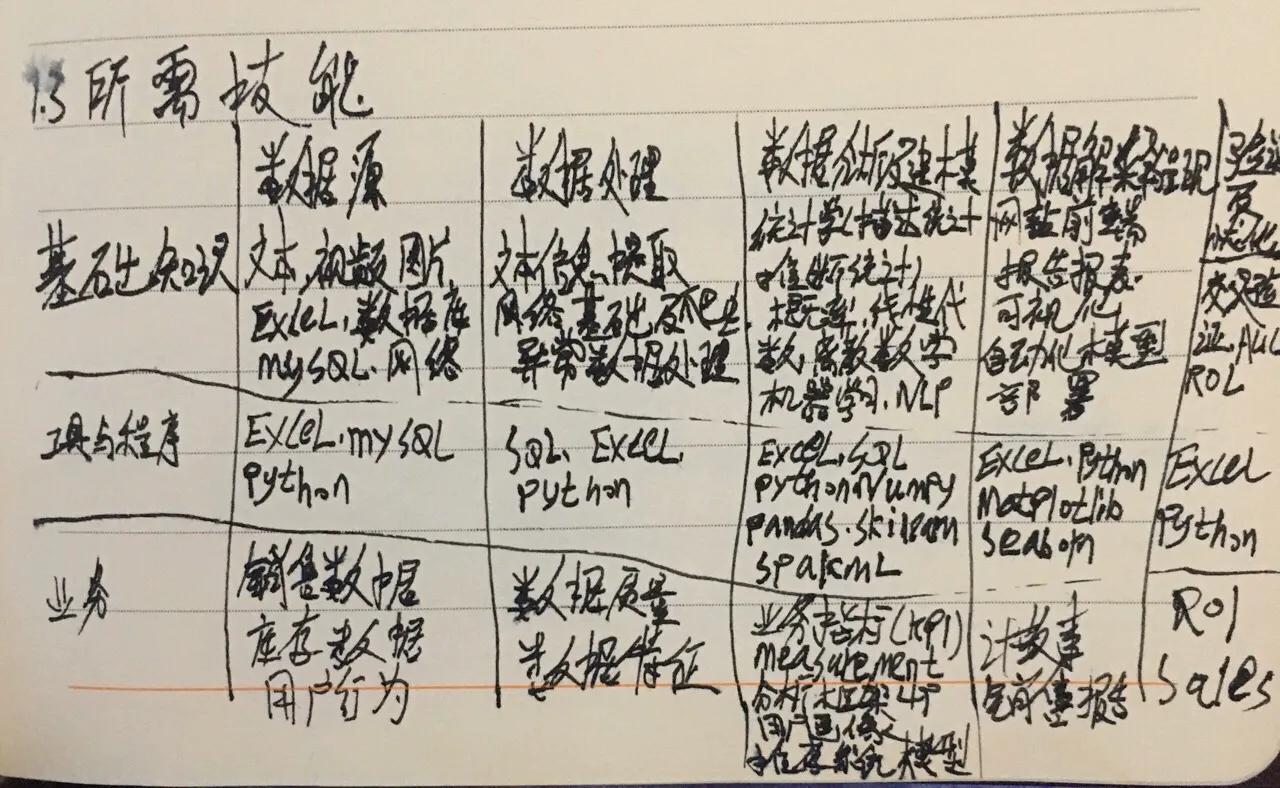 1.3 所需技能
数据源
数据处理
数据分析及建模
数据解释呈现
验证
及
优化
基础知识
文本,视频图片
Excel,数据库
mySQL.网络
文本信息提取
网络基础及爬虫
异常数据处理
统计学(描述统计
推断统计)
概率,线性代
数,离散数学
机器学习.NLP
网站前端
报告报表.
可视化
自动化模型
部署
交叉验
证.AUC
ROL
工具与程序
Excel.mySQL
python
SQL. Excel.
python
Excel.SQL
python Numpy
pandas.sklearn
sparkmL
Excel.python
Matplotlib
seaborn
Excel
python
业务
销售数据
库存数据
用户行为
数据质量
数据特征
业务指标(KPI)
measurement
分析框架4P
用户画像
推荐系统模型
讲故事
销售报告
ROI
Sales